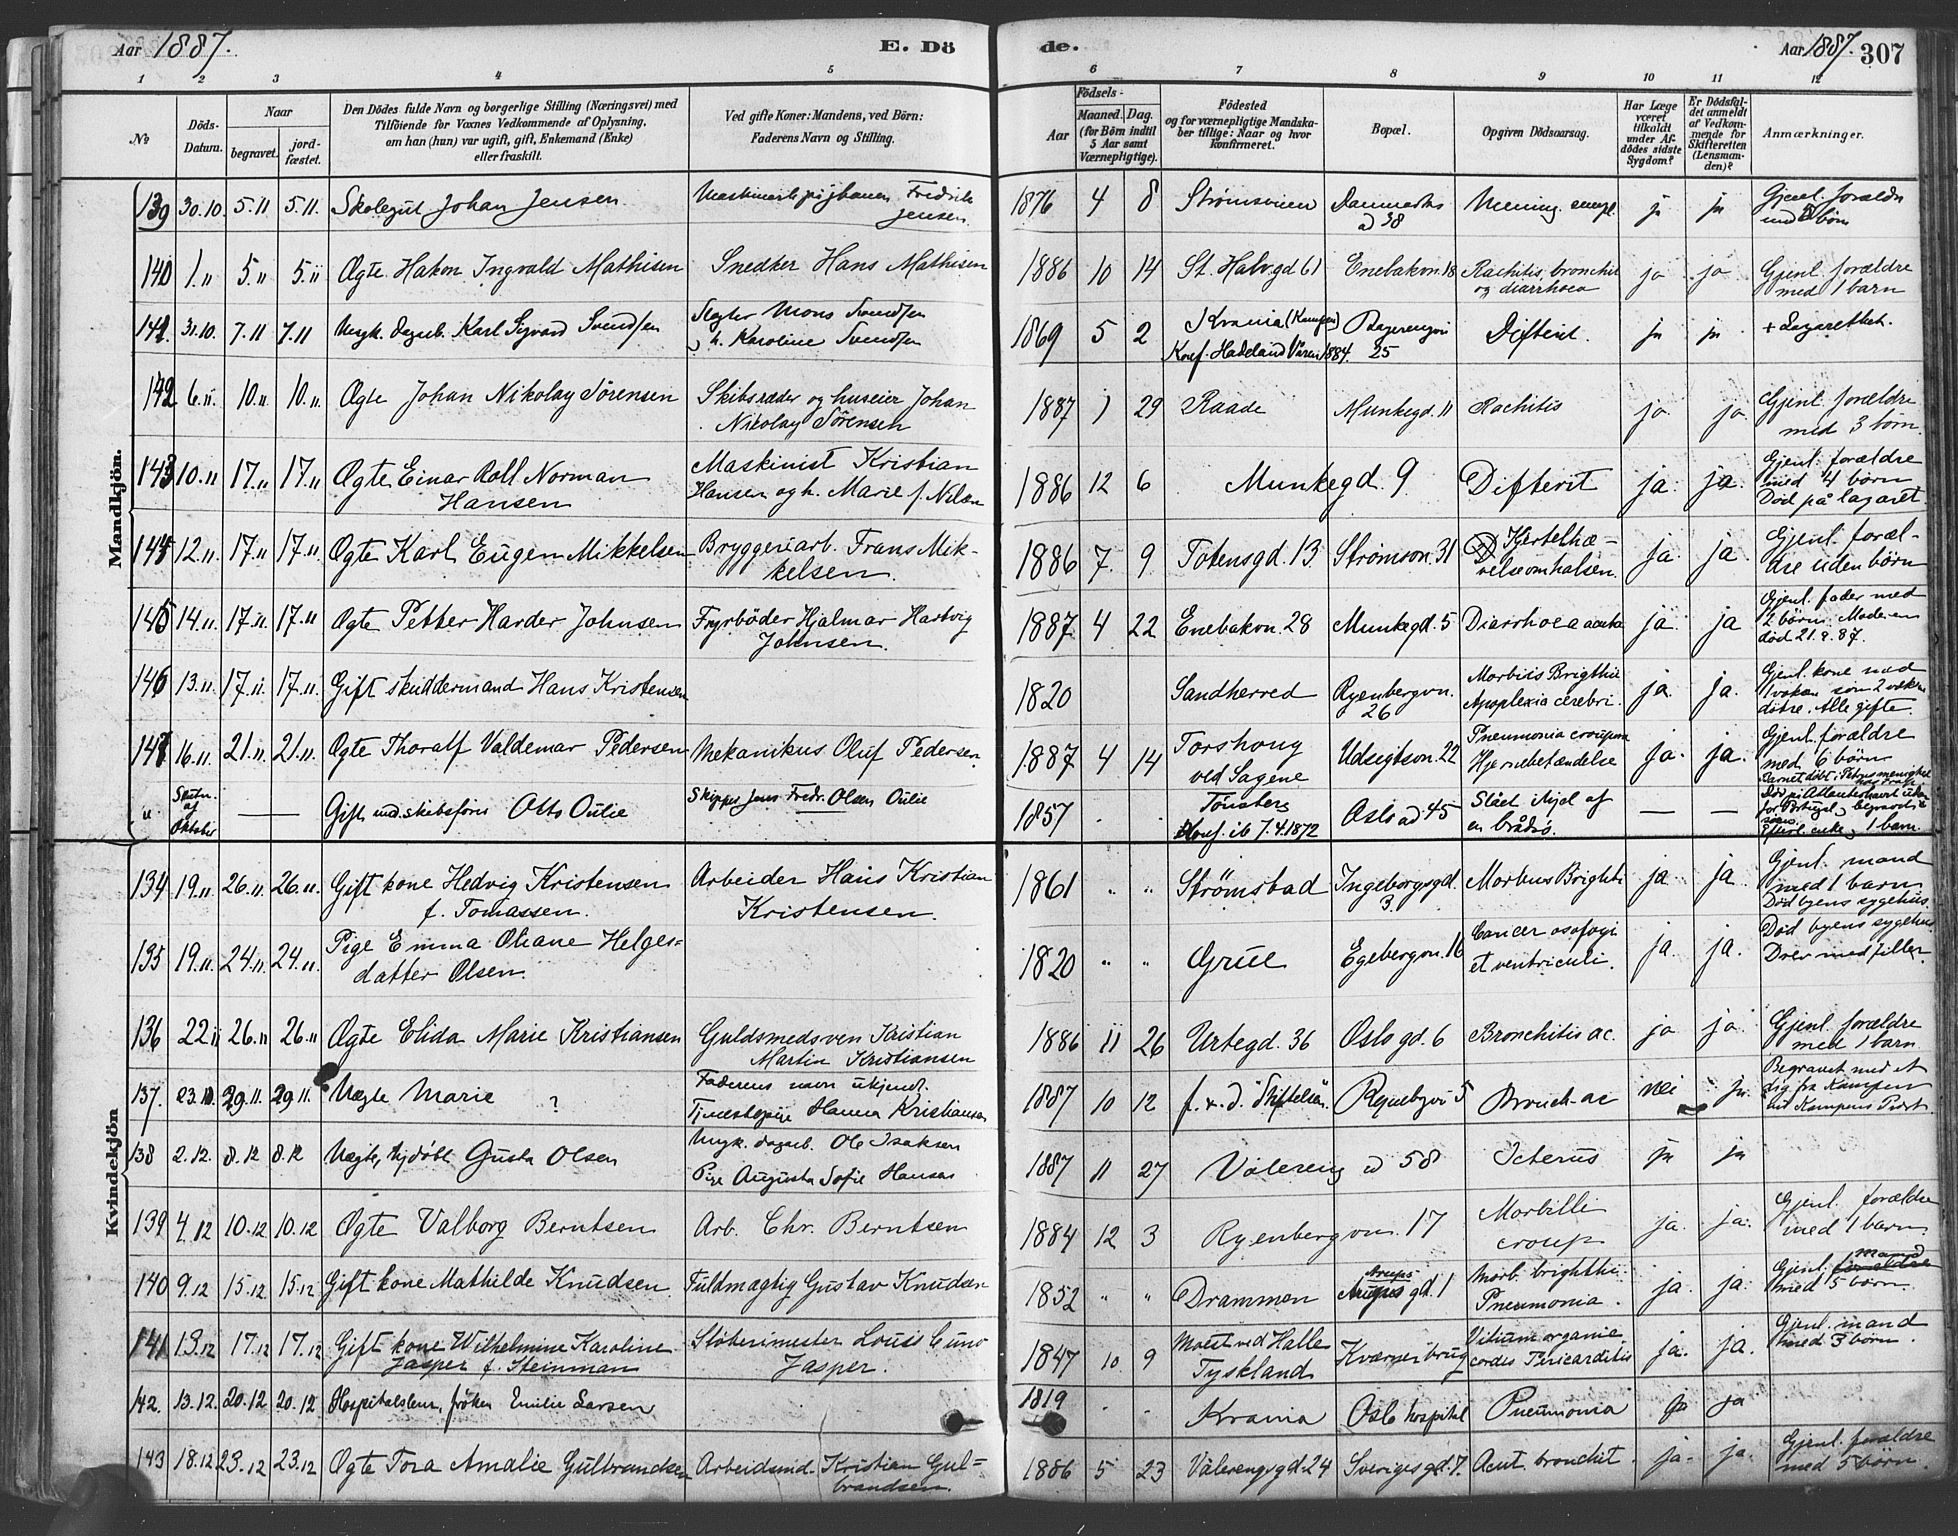 Aar 1887. E. Dö
de. Aar 1887. 307
1 2 3 4 5 6 7 8 9 10 11 12
No
Döds-Datum.
Naar
begravet. jordfæstet.
Den Dödes fulde Navn og borgerlige Stilling (Næringsvei) med
Tilföiende for Voxnes Vedkommende af Oplysning,
om han (hun) var ugift, gift, Enkemand (Enke)
eller fraskilt.
Ved gifte Koner: Mandens, ved Börn:
Faderens Navn og Stilling.
Födsels-
Aar Maaned. Dag.
(for Börn indtil 5 Aar samt Værnepligtige).
Födested
og for værnepligtige Mandskaber tillige: Naar og hvor konfirmeret.
Bopæl.
Opgiven Dödsaarsag.
Har Læge været tilkaldt under Afdödes sidste Sygdom?
Er Dödsfaldet anmeldt af Vedkommende for Skifteretten (Lensmanden)?
Anmærkninger.
Mandkjön.
139 30.10. 5.11 5.11. Skolegut Johan Jensen Fredrik Jensen 1876 4 8 ja ja Gjenl. forældr
140 1.11 5.11 5.11 Ægte Hakon Ingvald Mathisen Snedker Hans Mathisen 1886 10 14 St. Halv.gd 61 Enebakvn. 18 Rachitis, bronchit og diarrhoea ja ja Gjenl. forældre med 1 barn
141. 31.10. 7.11 7.11 Karl Sigvard Svendsen Slagter Mons Svendsen h. Karoline Svendsen 1869 5 2 Krania (Kampen) Konf. Hadeland Våren 1884. 25 Difterit. ja ja + Lazarettet.
142 6.11. 10.11 10.11 Ægte Johan Nikolay Sörensen Skibsræder og huseier Johan Nikolay Sörensen 1887 1 29 Raade Munkegd. 11 Rachitis ja ja. Gjenl. forældre med 3 börn.
143 10.11 17.11 17.11 Ægte Einar Rolf Norman Hansen Maskinist Kristian Hansen og h. Marie f. Nilsen 1886 12 6 Munkegd. 9 Difterit ja. ja. Gjenl. forældre med 4 börn Död på lazaret.
144 12.11 17.11 17.11 Ægte Karl Eugen Mikkelsen Bryggeriarb. Frans Mikkelsen. 1886 7. 9. Totensgd. 13 Strömsvn. 31 Kjertelhævelse om halsen. ja ja Gjenl. forældre uden börn
145 14.11 17.11 17.11 Ægte Petter Harder Johnsen Fyrböder Hjalmar Hartvig Johnsen. 1887. 4 22 Enebakvn. 28 Munkegd. 5 Diarrhoea acuta ja. ja Gjenl. fader med 2 börn. Moderen död 21.8.87.
146 13.11. 17.11. 17.11. Gift skuddermand Hans Kristensen 1820 Sandherred Ryenbergvn. 26 Morbus Brigthii Apoplexia cerebri. ja. ja. Gjenl. kone med
147 16.11. 21.11 21.11. Ægte Thoralf Valdemar Pedersen Mekanikus Oluf Pedersen 1887 4 14 Torshoug ved Sagene Udsigtsvn. 22 Pneumonia crouposa Hjernebetændelse ja. ja. Gjenl. forældre med 6 börn
" Slutn. af Oktober — Gift Otto Oulie Skipper Jens Fredr. Olsen Oulie 1857 . . Tönsberg Konf. ib 7.4.1872 Oslo ad. 45 Slået ihjel af en brådsö. — — Efterl. enke, 1 barn.
Kvindekjön
134 19.11 26.11. 26.11. Gift kone Hedvig Kristensen f. Tomassen. Arbeider Hans Kristian Kristensen. 1861 " " Strömstad Ingeborgsgd. 3. Morbus Brighti ja ja. Gjenl. mand med 1 barn. Död byens sygehus.
135 19.11. 24.11. 24.11 Pige Emma Oliane Helgesdatter Olsen. 1820 " " Grue Egebergvn. 16 Cancer osofogi et ventriculi. ja. ja. Död byens sygehus Drev med filler.
136 22.11 26.11 26.11 Ægte Elida Marie Kristiansen Guldsmedsven Kristian Martin Kristiansen 1886 11 26 Urtegd. 36 Oslogd. 6 Bronchitis ac. ja ja Gjenl. forældre med 1 barn
137. 23.10. 29.11. 29.11. Uægte Marie ? Faderens navn ukjendt. Tjenestepige Hanna Kristiansen 1887 10 12 f. . d. "Stiftelsen". 5 Bronch. ac nei ja. Begravet med et lig fra Kampen
138 2.12. 8.12 8.12 Uægte, hjdöbt Gusta Olsen Ungk. dagarb. Ole Isaksen Pige Augusta Sofie Hansen 1887 11 27 Vålereng ad 58 Icterus ja ja
139 4.12 10.12 10.12 Ægte Valborg Berntsen Arb. Chr. Berntsen 1884 12 3 Ryenbergvn. 17 Morbilli croup ja. ja. Gjenl. forældre med 1 barn.
140 9.12 15.12 15.12 Gift kone Mathilde Knudsen Fuldmægtig Gustav Knudsen 1852 " " Drammen Arups gd. 1 Morb. brigthii. Pneumonia. ja. ja. Gjenl. mand med 5 börn.
141 13.12 17.12 17.12 Gift kone Wilhelmine Karoline Jasper f. Steinman Støberimester Louis Cuno Jasper. 1847 10 9 ved Halle Tyskland Kværnerbrug Vitium organic. cordis Pericarditis ja. ja. Gjenl. mand med 3 börn.
142. 13.12. 20.12 20.12 Hospitalslem, fröken Emilie Larsen 1819 . . Krania Oslo hospital Pneumonia ja ja
143 18.12 23.12 23.12 Ægte Tora Amalie Gulbrandsen Arbeidsmd. Kristian Gulbrandsen. 1886 5 23 Vålerengsgd. 24 Sverigesgd. 7. Acut. bronchit ja. ja. Gjenl. forældre med 5 börn.